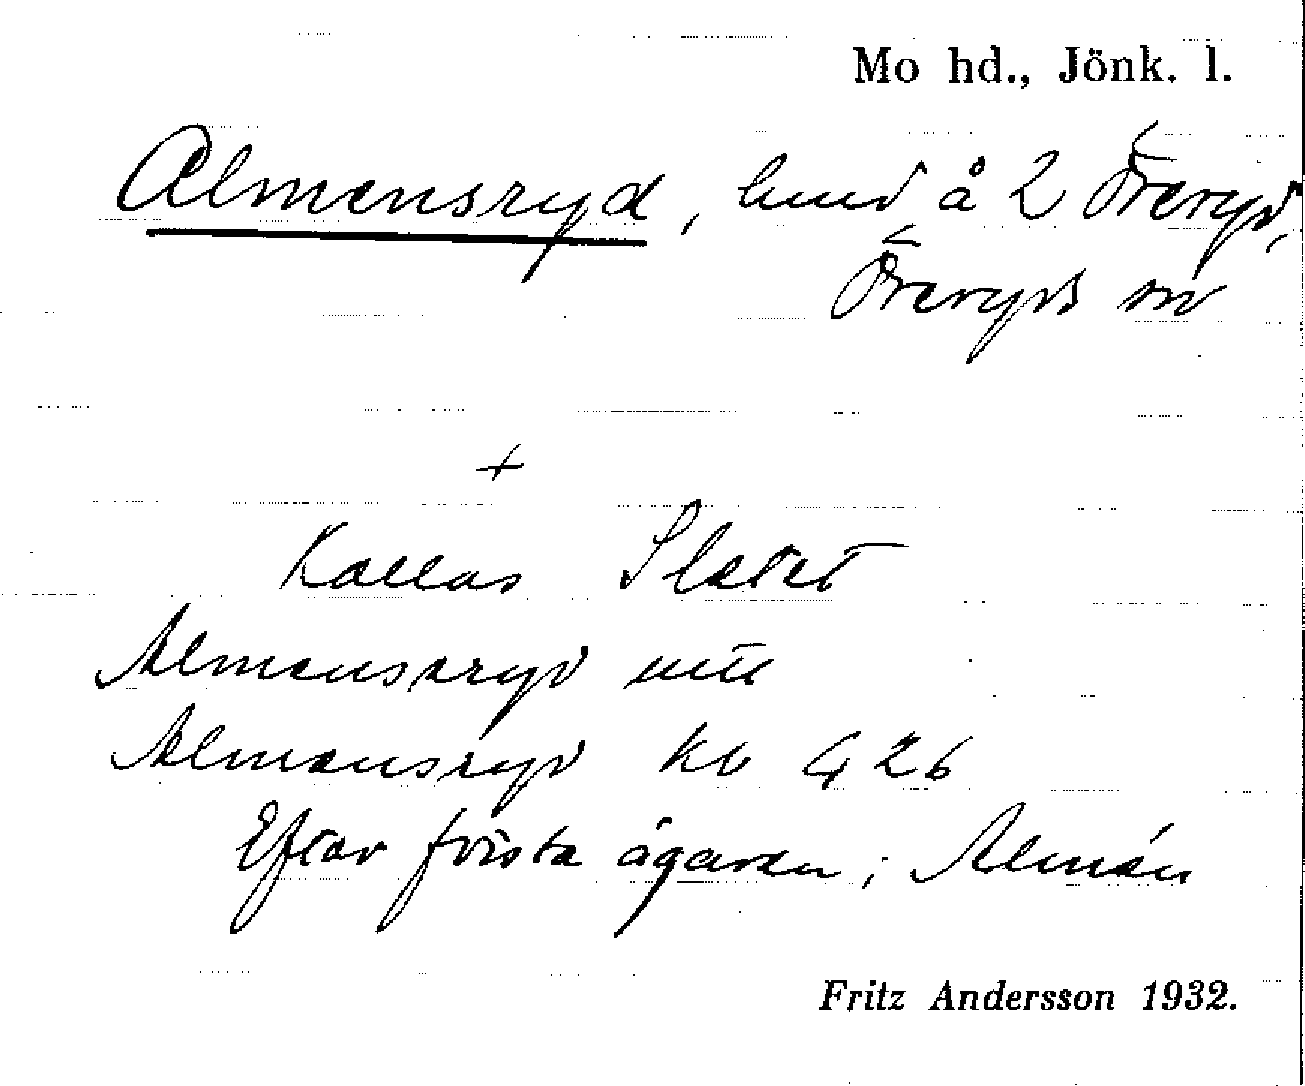 Mo hd., Jönk. l.
Almensryd, lund å 2 Öreryd,
Öreryds sn
+
Kallas Slätet
Almensryd utt
Almensryd kb 426
Efter första ägaren; Almén
Fritz Andersson 1932.